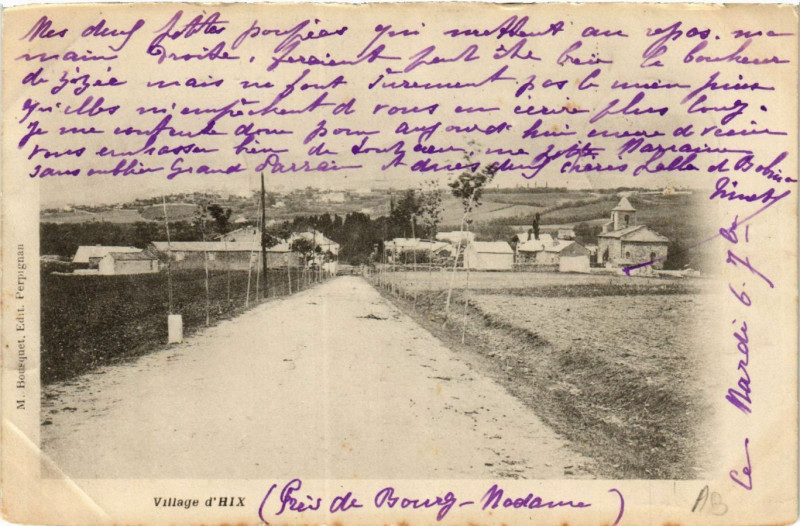 Mes deux petites poupées qui mettent au repos ma
main droite, feraient peut être bien le bonheur
de zizée mais ne font surement pas le mien puis
qu'elles m'empêchent d vous en écrire plus long.
Je me contente donc pour aujourd'hui encore d
vous embrasser bien de tout coeur, ma petite Marraine
sans oublier Grand Parrain et deux chères
Ce Mardi 6
M. Bousquet, Edit. Perpignan
Village d'HIX (Près de Bourg-Madame)
AB